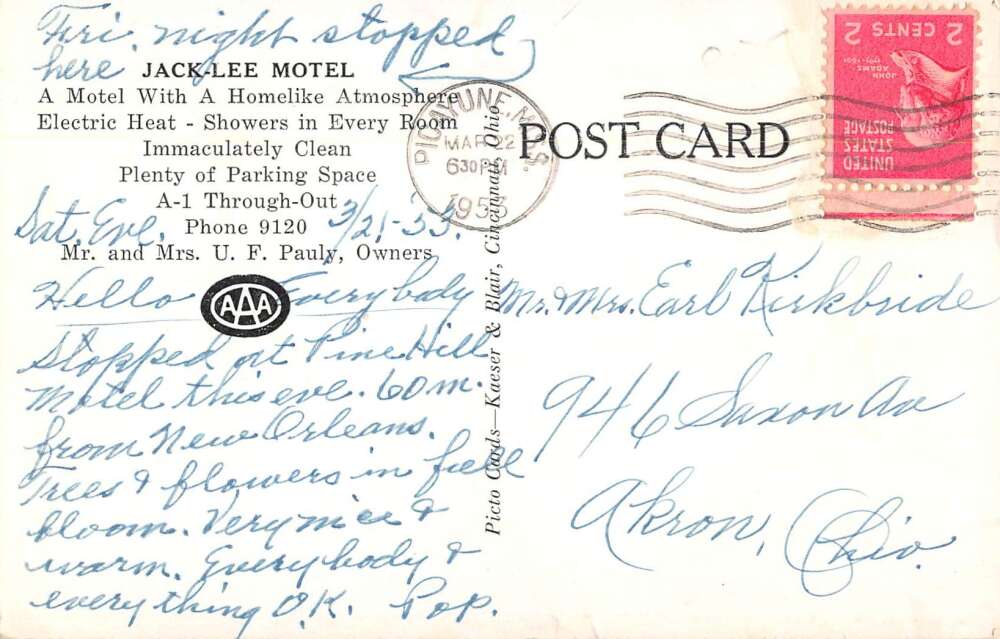 Fri. night stopped
here
JACK-LEE MOTEL
A Motel With A Homelike Atmosphere
Electric Heat - Showers in Every Room
Immaculately Clean
Plenty of Parking Space
A-1 Through-Out
Phone 9120
Mr. and Mrs. U. F. Pauly, Owners
Sat. Eve. 3/21-53.
AAA
Hello Everybody
Stopped at Pine Hill
Motel this eve. 60 m.
from New Orleans.
Trees & flowers in full
bloom. Very nice &
warm. Everybody &
everything O.K. Pop.
Picto Cards—Kaeser & Blair, Cincinnati, Ohio
PICAYUNE, MISS.
MAR 22
630 PM
1953
POST CARD
UNITED
STATES
POSTAGE
JOHN
ADAMS
1797-1801
2 CENTS 2
Mr. & Mrs. Earl Kirkbride
946 Saxon Av
Akron, Ohio.